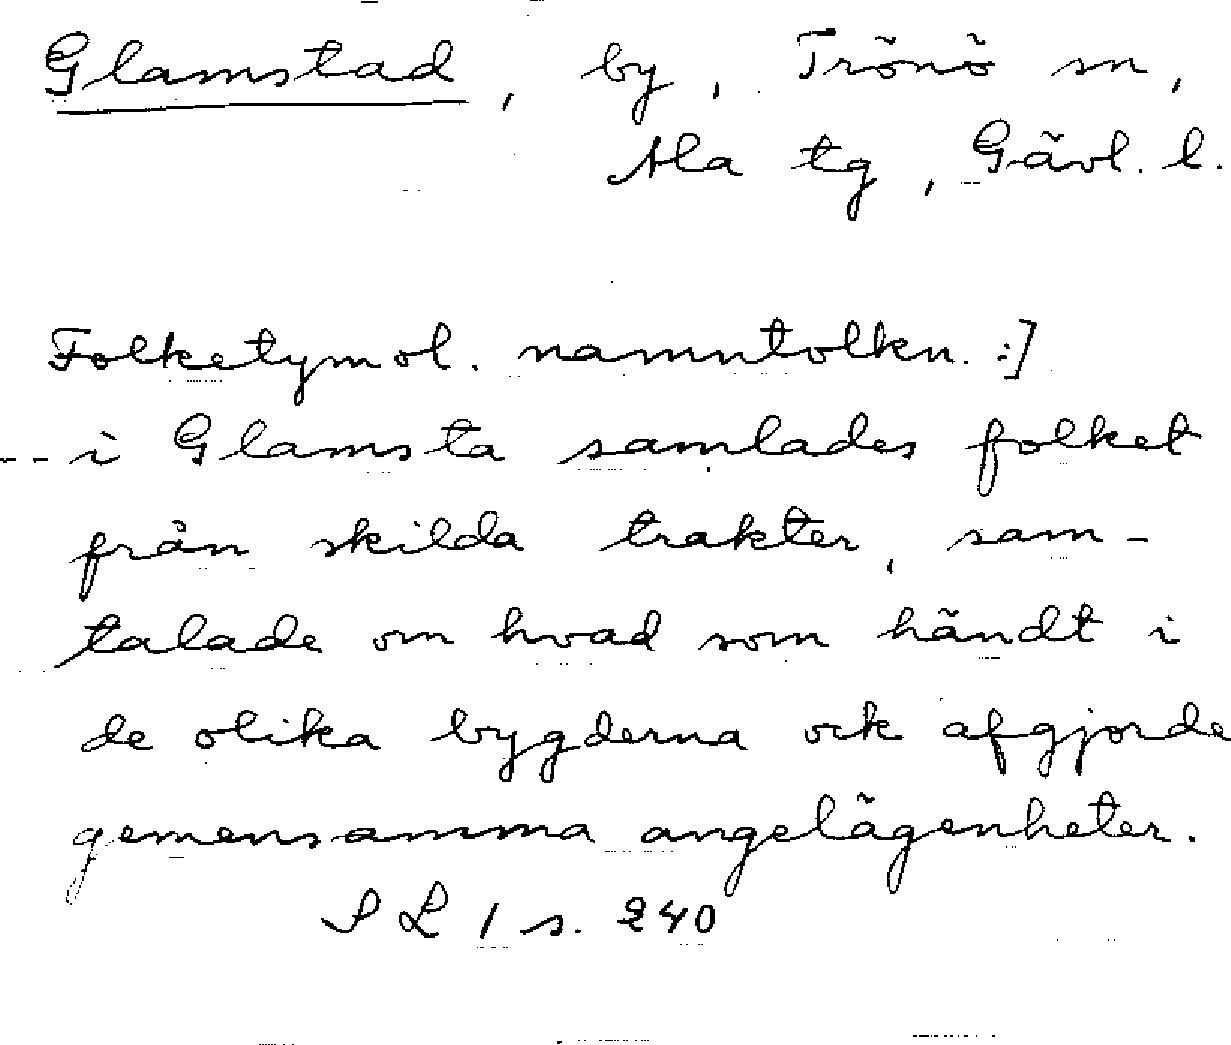 Glamstad, by, Trönö sn,
Ala tg, Gävl. l.
Folketymol. namntolkn. :]
-- i Glamsta samlades folket
från skilda trakter, sam-
talade om hvad som händt i
de olika bygderna ock afgjorde
gemensamma angelägenheter.
SL 1 s. 240